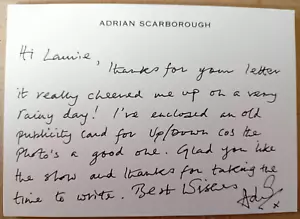 ADRIAN SCARBOROUGH
Hi Laurie,
Thanks for your letter
it really cheered me up on a very
rainy day! I've enclosed an old
publicity card for Up/Down cos the
photo's a good one. Glad you like
the show and thanks for taking the
time to write. Best Wishes
Ady x